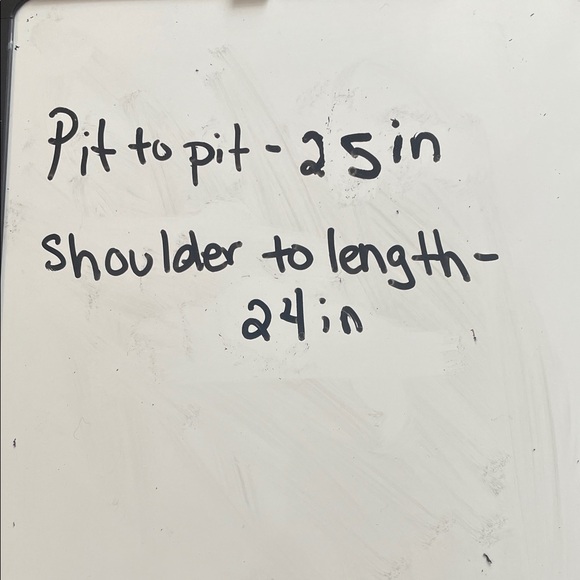 Pit to pit - 25in
Shoulder to length -
24in